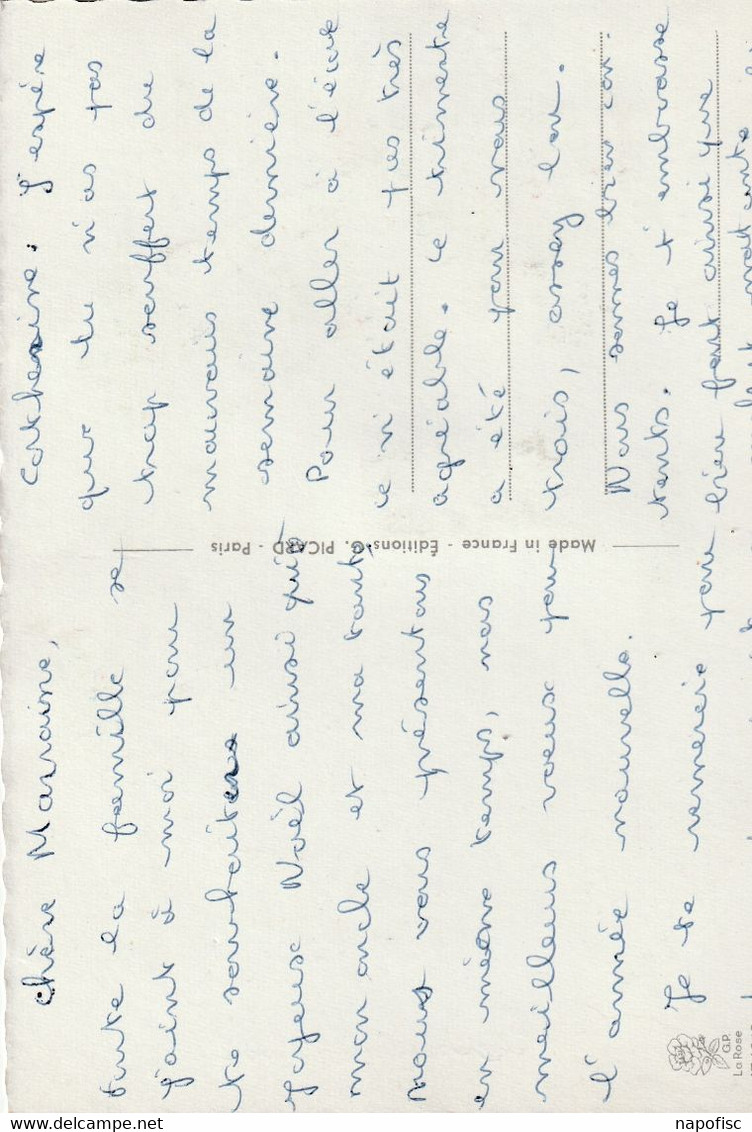 Chère Marraine,
toute la famille se
joint à moi pour
te souhaiter un
joyeux Noël ainsi qu'à
mon oncle et ma tante
nous vous présentons
en même temps, nos
meilleurs voeux pour
l'année nouvelle.
Je te remercie pour
Catherine. J'espère
que tu n'as pas
trop souffert du
mauvais temps de la
semaine dernière.
Pour aller à l'école
ce n'était pas très
agréable. Le trimestre
a été pour nous
trois, assez bon.
Nous sommes bien con-
tents. Je t'embrasse
bien fort ainsi que
Made in France - Éditions G. PICARD - Paris
G.P.
La Rose
napofisc